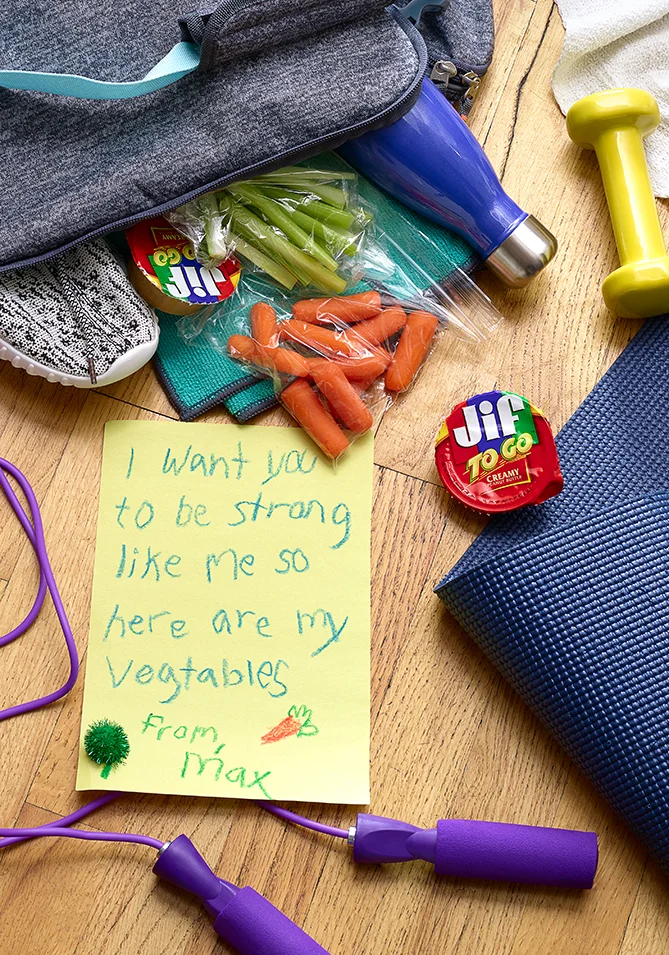 CREAMY
TO GO
Jif
Jif
TO GO
CREAMY
PEANUT BUTTER
I want you
to be strong
like me so
here are my
vegtables
from,
Max